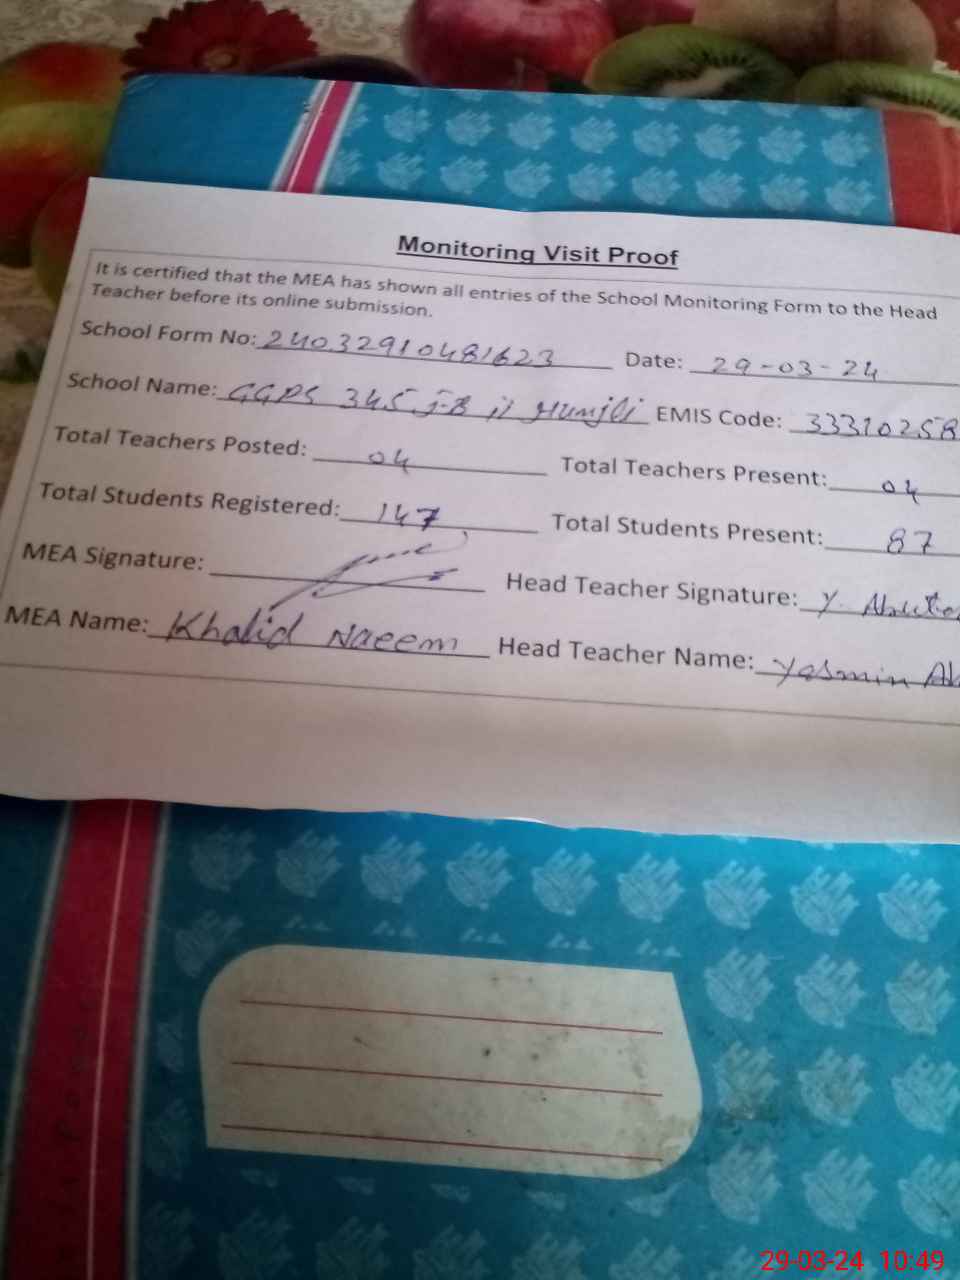 Monitoring Visit Proof
It is certified that the MEA has shown all entries of the School Monitoring Form to the Head
Teacher before its online submission.
School Form No: 24032910481623 Date: 29-03-24
School Name: GGPS 345 J-B il Hunjli EMIS Code: 33310258
Total Teachers Posted: 04 Total Teachers Present: 04
Total Students Registered: 147 Total Students Present: 87
MEA Signature: Head Teacher Signature: Y.
MEA Name: Khalid Naeem Head Teacher Name: Yasmin Ak
29-03-24 10:49